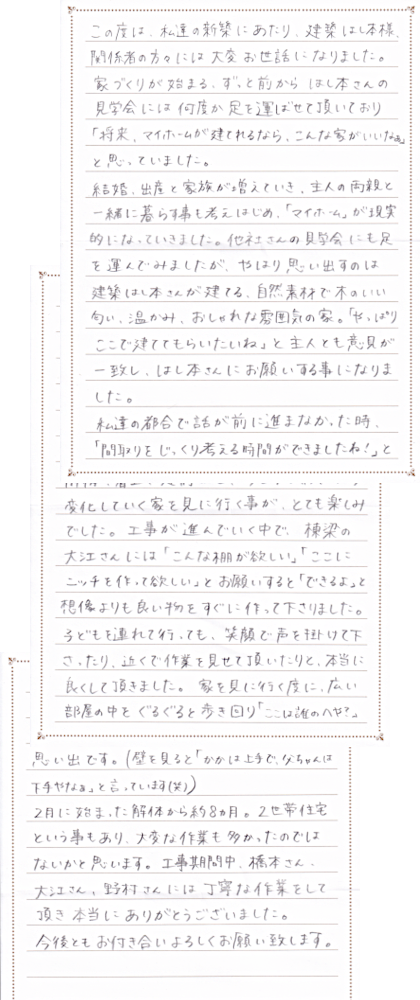 この度は、私達の新築にあたり、建築はし本様、
関係者の方々には大変お世話になりました。
家づくりが始まる、ずっと前からはし本さんの
見学会には何度か足を運ばせて頂いており
「将来、マイホームが建てれるなら、こんな家がいいなぁ」
と思っていました。
結婚、出産と家族が増えていき、主人の両親と
一緒に暮らす事も考えはじめ、「マイホーム」が現実
的になっていきました。他社さんの見学会にも足
を運んでみましたが、やはり思い出すのは
建築はし本さんが建てる、自然素材で木のいい
匂い、温かみ、おしゃれな雰囲気の家。「やっぱり
ここで建ててもらいたいね」と主人とも意見が
一致し、はし本さんにお願いする事になりま
した。
私達の都合で話が前に進まなかった時、
「間取りをじっくり考える時間ができましたね!」と
変化していく家を見に行く事が、とても楽しみ
でした。工事が進んでいく中で、棟梁の
大江さんには「こんな棚が欲しい」「ここに
ニッチを作って欲しい」とお願いすると「できるよ」と
想像よりも良い物をすぐに作って下さりました。
子どもを連れて行っても、笑顔で声を掛けて下
さったり、近くで作業を見せて頂いたりと、本当に
良くして頂きました。家を見に行く度に、広い
部屋の中をぐるぐると歩き回り「ここは誰のへや?」
思い出です。(壁を見ると「かかは上手で、父ちゃんは
下手やなぁ」と言っています(笑))
2月に始まった解体から約8ヵ月。2世帯住宅
という事もあり、大変な作業も多かったのでは
ないかと思います。工事期間中、橋本さん、
大江さん、野村さんには丁寧な作業をして
頂き本当にありがとうございました。
今後ともお付き合いよろしくお願い致します。